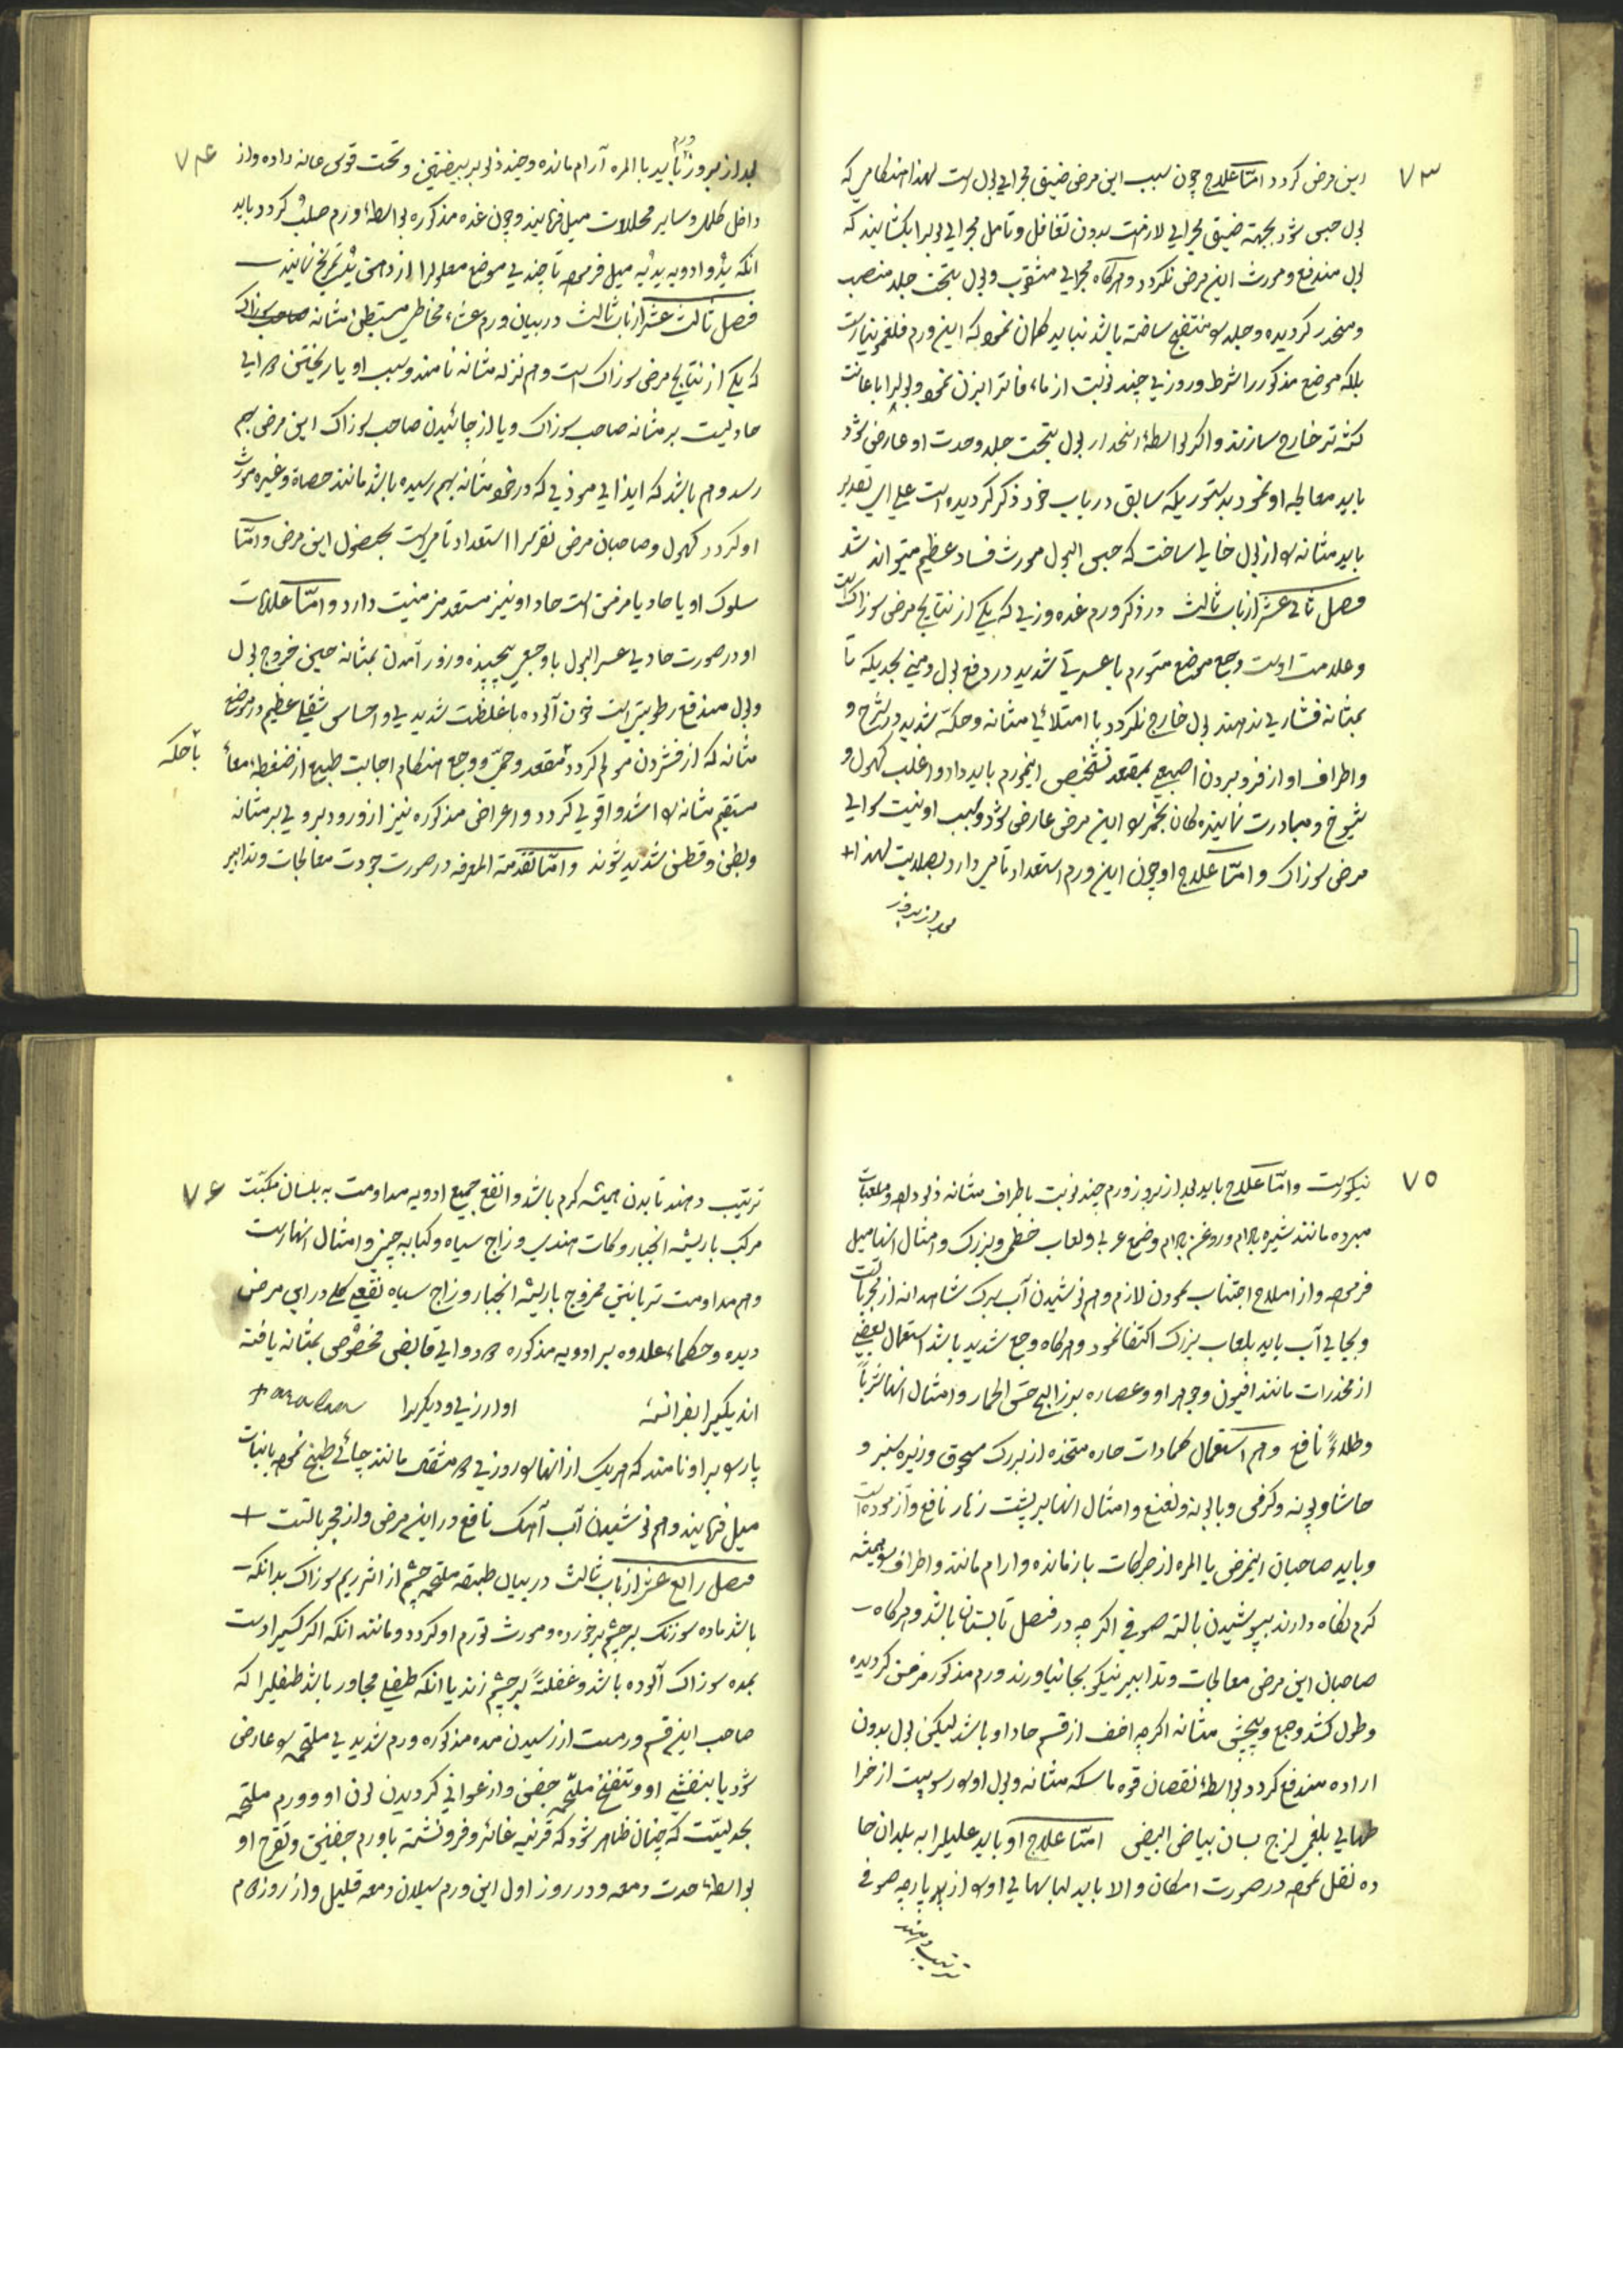 ۷۳
این مرض کردد امّا علاج چون سبب این مرض ضیق مجرای بول است لهذا هنکامی که
بول حبس شود بجهته ضیق مجرای لازمست بدون تغافل و تامل مجرای بولرا بکشانید که
بول مندفع و مورث این مرض نکردد و هرکاه مجرای مثقوب و بول بتحت جلد منصب
و منحدر کردیده و جلد را منتفخ ساخته باشد نباید کمان نمود که این ورم فلغمونیا است
بلکه موضع مذکور را شرط و روزی چند نوبت از ماء فاتر ابزن نمود و بولرا باعانت
خارج سازند و اکر بواسطهٔ انحدار بول بتحت جلد و حدت او عارض شود
باید معالجه او نمود بدستوریکه سابق در باب خود ذکر کردیده است علی ای تقدیر
باید مثانه را از بول خالی ساخت که حبس البول مورث فساد عظیم میتواند شد
فصل ثانی عشر از باب ثالث در ذکر ورم غده وزی که یکی از نتایج مرض سوزاک است
و علامت اوست وجع موضع متورم با عسرتی شدید در دفع بول و منی بحدیکه تا
بمثانه فشاری ندهند بول خارج نکردد با امتلائی مثانه و حکهٔ شدید در شرج و
و اطراف او از فرو بردن اصبعی بمقعد تشخیص اینورم باید داد و اغلب کهول و
شیوخ و مبادرت نماینده کان بخمر را این مرض عارض شود و سبب او نیست سوای
مرض سوزاک و امّا علاج او چون این ورم استعداد تامی دارد بصلابت لهذا +
بعد از بروز
۷۴
بعد از بروز ورم باید بالمره آرام مانده و چند زلو بر بیضتین و تحت قوس عانه داده و از
داخل کلمل و سایر محللات میل فرمایند و چون غده مذکوره بواسطهٔ ورم صلب کردد باید
انکه یدّ و ادویه یدیّه میل فرموده تا چندی موضع معلولرا از دهن یدّ تمریخ نمایند
فصل ثالث عشر از باب ثالث در بیان ورم عشاء مخاطی مستبطن مثانه صاحب سوزاک
که یکی از نتایج مرض سوزاک است و هم نزله مثانه نامند و سبب او یا ریختن دوای
حادیست بر مثانه صاحب سوزاک و یا از چائیدن صاحب سوزاک این مرض بهم
رسد و هم باشد که ایذای موذی که در خود مثانه بهم رسیده باشد مانند حصاة و غیره مورث
او کردد کهول و صاحبان مرض نقرس را استعداد تامی است بحصول این مرض و امّا
سلوک او یا حاد یا مزمن است حاد او نیز مستعد مزمنیت دارد و امّا علامات
او در صورت حادی عسر البول با وجعی پیچیده و زور آمدن بمثانه حین خروج بول
و بول مندفع رطوبتی است خون آلوده با غلظت شدیدی و احساس ثقلی عظیم در موضع
مثانه که از فشردن مولم کردد مقعد و حمّی و وجع هنکام اجابت طبیع از ضغطه امعاء
با حکه
مستقیم مثانه را اشد و اقوی کردد و اعراض مذکوره نیز از ورود برودی بر مثانه
و بطن و قطن شدید شوند و امّا تقدمة المعرفه در صورت جودت معالجات و تدابیر
۷۵
نیکوست و امّا علاج باید بعد از بروز ورم چند نوبت باطراف مثانه زلو داده و ملعبات
مبرده مانند شیره بادام و روغن بادام و صمغ عربی و لعاب خطمی و بزرک و امثال انها میل
فرموده و از املاح اجتناب نمودن لازم و هم نوشیدن آب برک شاهدانه از مجربات است
و بجای آب باید بلعاب بزرک اکتفا نمود و هرکاه وجع شدید باشد استعمال بعضی
از مخدرات مانند افیون و جوهر او و عصاره بزرالبنج خس الحمار و امثال انها شرباً
و طلاءً نافع و هم استعمال ضمادات حاره متخذه از بزرک مسحوق و زیره سبز و
حاشا و پونه و کرفس و بابونه و نعنع و امثال انها بر پشت زهار نافع و آزموده است
و باید صاحبان اینمرض بالمره از حرکات باز مانده و ارام مانند و اطراف را همیشه
کرم نکاه دارند بپوشیدن بالته صوفی اکرچه در فصل تابستان باشد و هرکاه
صاحبان این مرض معالجات و تدابیر نیکو بجا نیاورند ورم مذکور مزمن کردیده
و طول کشد وجع و پیچش مثانه اکرچه اخف از قسم حاد او باشد لیکن بول بدون
اراده مندفع کردد بواسطهٔ نقصان قوه ماسکه مثانه و بول او را رسوبیست از خرا
طهای بلغمی لزج بسان بیاض البیض امّا علاج او باید علیلرا به بلدان حا
ده نقل نموده در صورت امکان و الا باید لباسهای او را از پارچه صوفی
ترتیب دهند
۷۶
ترتیب دهند تا بدن همیشه کرم باشد و انفع جمیع ادویه مداومت به بلسان مکبّت
مرکب با ریشه انجبار و کات هندی و زاج سیاه و کبابه چینی و امثال انهاست
و هم مداومت تربانتین ممزوج با ریشه انجبار و زاج سیاه نفعی کلی در این مرض
دیده و حکماء علاوه بر ادویه مذکوره دو دوای قابض مخصوص بمثانه یافته
اند یکیرا بفرانسه اوا ارزی و دیکریرا
پارسو برا و نامند که هریک از انها را روزی دو مثقال مانند چائی طبخ نموده با نبات
میل فرمایند و هم نوشیدن آب آهک نافع در این مرض و از مجرباتست +
فصل رابع عشر از باب ثالث در بیان طبقه ملتحمه چشم از اثر ریم سوزاک بدانکه
باشد ماده سوزنک بر چشم بر خورده و مورث تورم او کردد و مانند انکه اکر کسیرا دست
بمده سوزاک آلوده باشد و غفلتاً بر چشم زند یا انکه طفلی مجاور باشد طفلیرا که
صاحب این قسم ورمست از رسیدن مده مذکوره ورم شدیدی ملتحمه را عارض
شود یا بنفشی او و تنفخ ملتحمه جفن و ارغوانی کردیدن لون او و ورم ملتحمه
بحدیست که چنان ظاهر شود که قرنیه غائر و فرو نشسته با ورم جفنین و تقرح او
بواسطهٔ حدت دمعه و در روز اول این ورم سیلان دمعه قلیل و از روز دوم